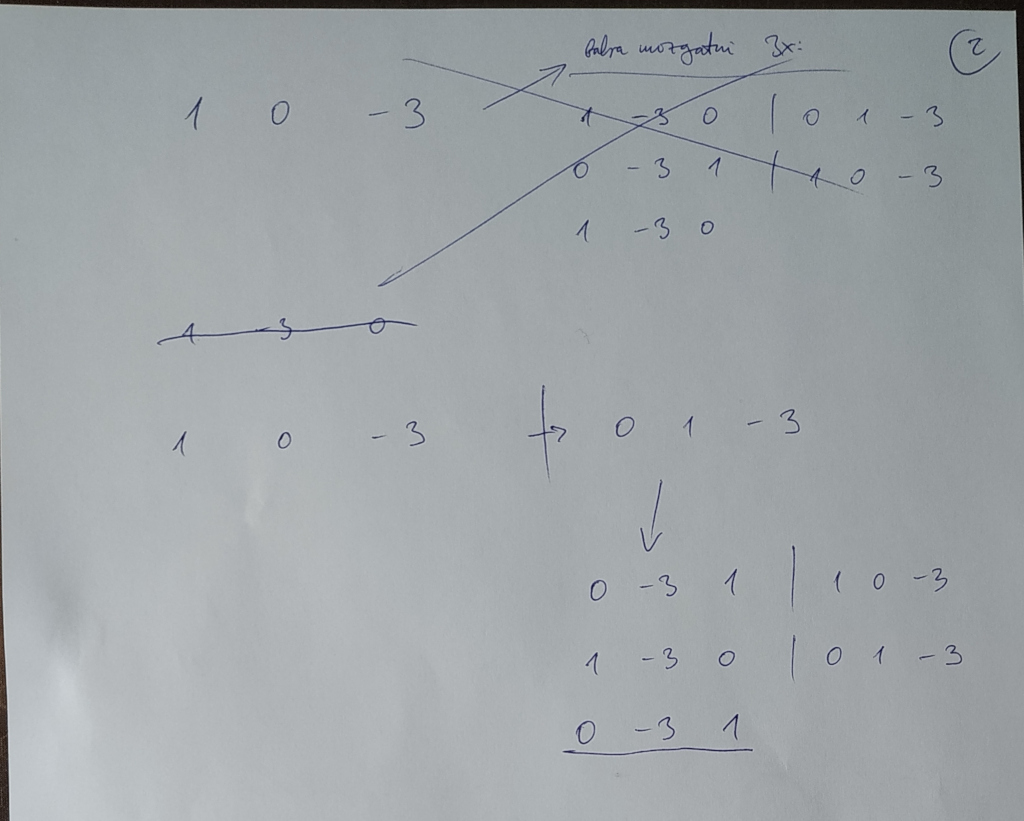 balra mozgatni 3x:
2
1 0 -3
1 -3 0 | 0 1 -3
0 -3 1 | 1 0 -3
1 -3 0
1 -3 0
1 0 -3 → 0 1 -3
0 -3 1 | 1 0 -3
1 -3 0 | 0 1 -3
0 -3 1